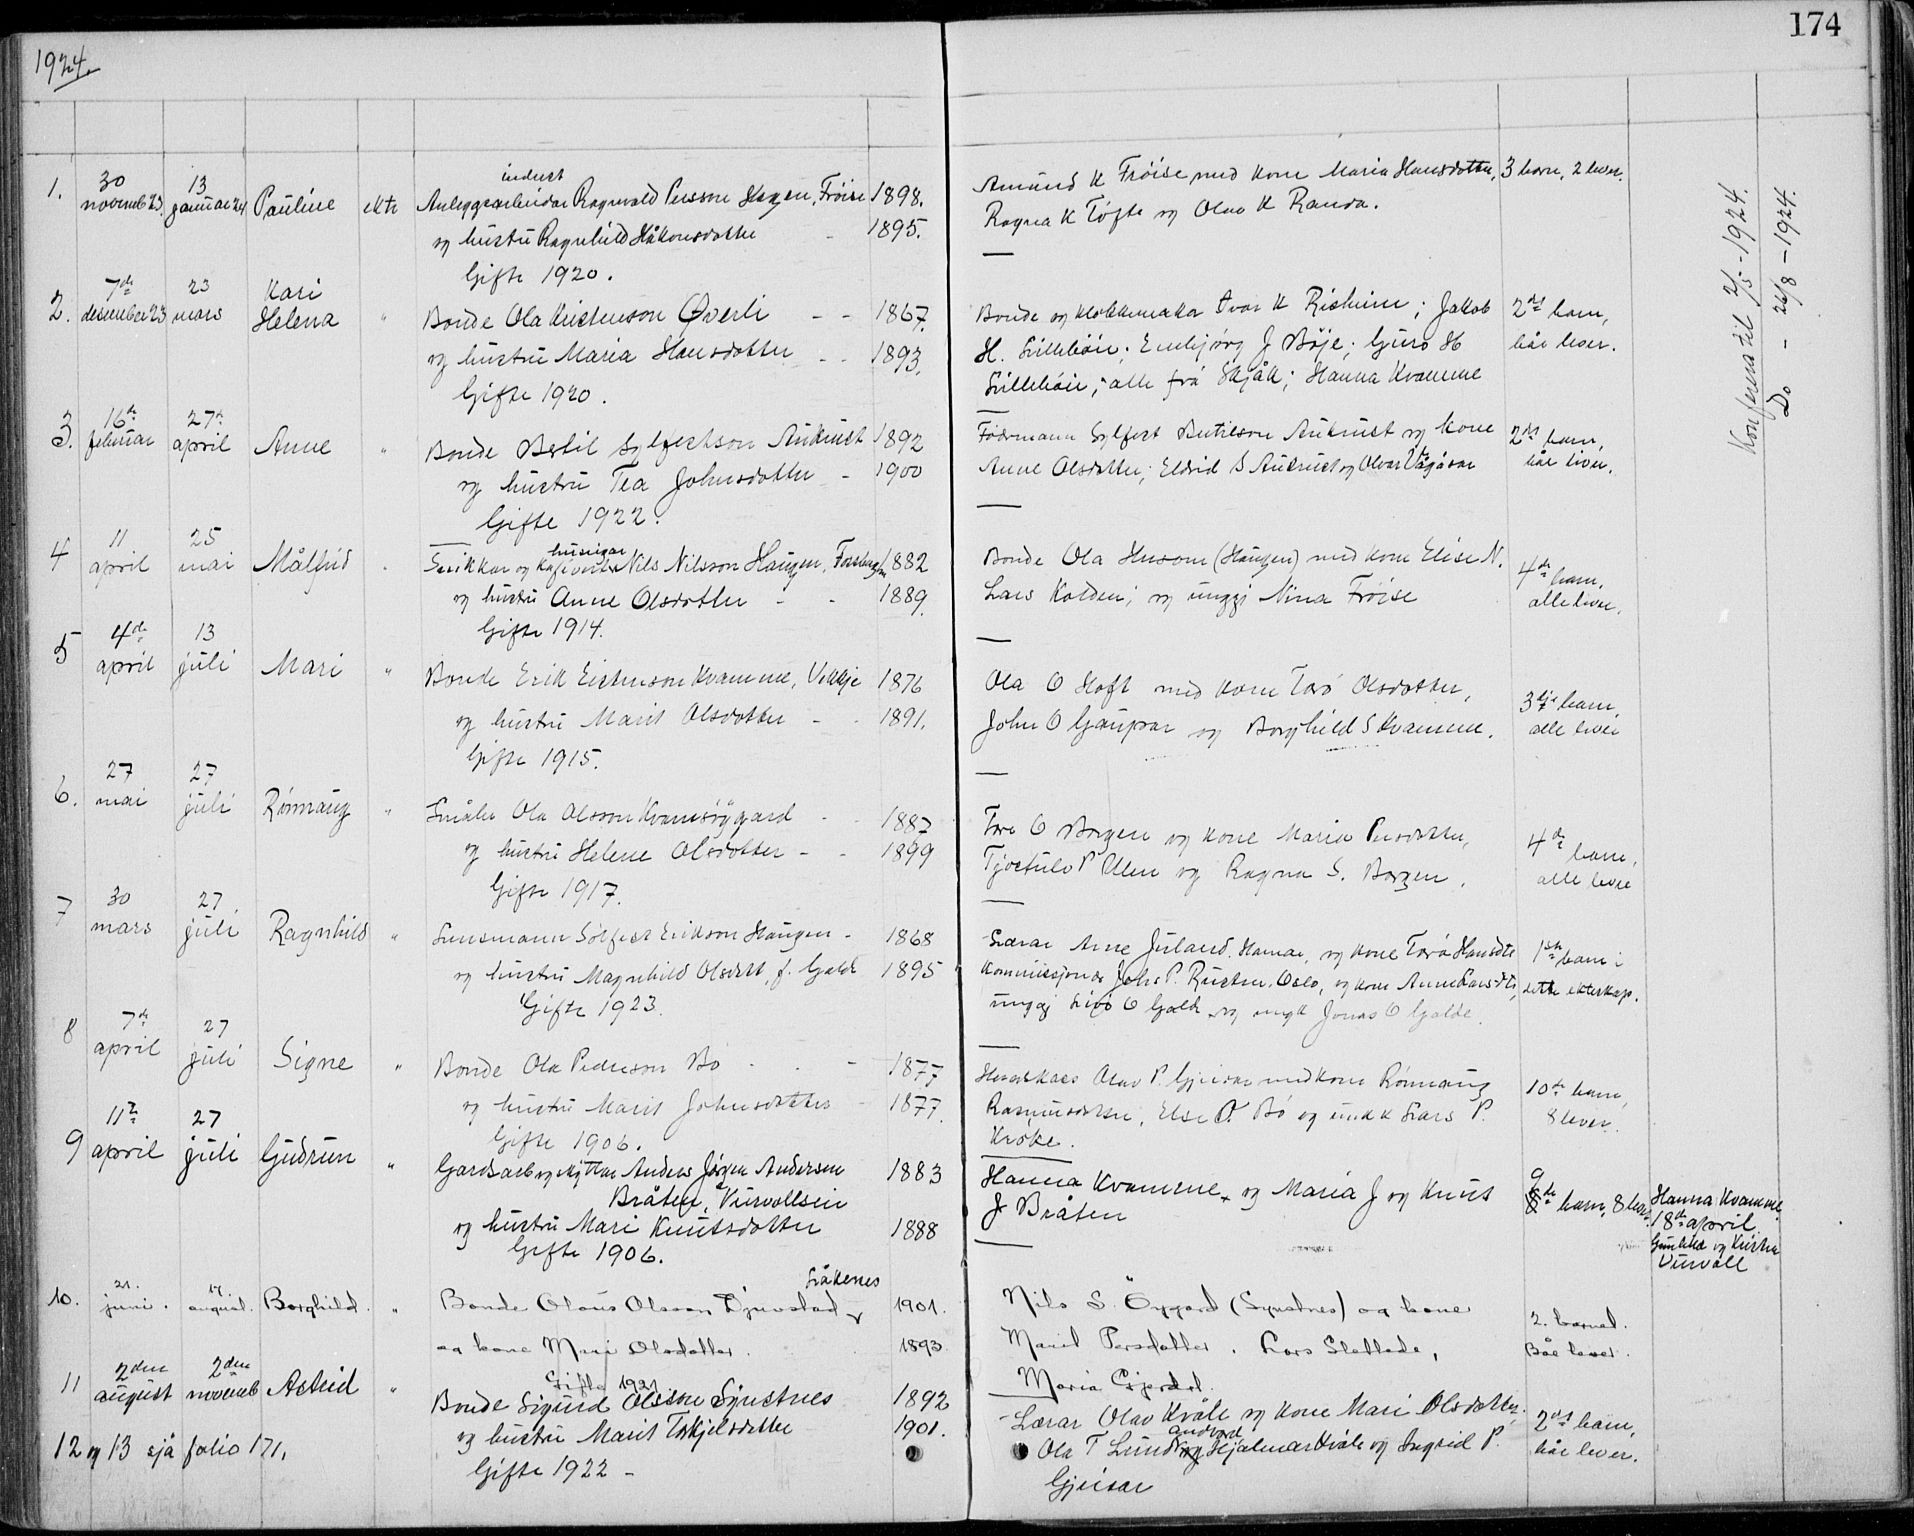 174
1924.
1. 30 novemb 23. 13 januar 24 Pauline ekte
indust
Anleggsarbeidar Ragnvald Persson Hagen, Fröise 1898.
og hustru Ragnhild Håkonsdotter - 1895.
Gifte 1920.
Amund K Fröise med kone Maria Hansdotter, 3 barn, 2 lever.
Ragna K Töfte og Olav K Randa.
2. 7de desember 23 23 mars Kari Helena "
Bonde Ola Kristenson Øverli - - 1867.
og hustru Maria Hansdotter - - 1893.
Gifte 1920.
Bonde og klokkemakar Ivar K Risheim; Jakob
H. Lillebøie; Embjørg J Böje; Guro H
Lillebøie; alle frå Skjåk; Hanna Kvamme
2det barn,
båe lever.
3. 16de februar 27de april Anne "
Bonde Bertil Sylfestson Aukrust 1892
og hustru Tea Johnsdotter - 1900
Gifte 1922.
Födrmann Sylfest Bertilson Aukrust og kone
Anne Olsdotter; Eldrid S Aukrust og Olvar Vågåsar
2det barn,
båe liver.
4 11 april 25 mai Målfrid "
huseigar
Snikkar og kafevert Nils Nilsson Haugen, Fossbergom 1882
og hustru Anne Olsdotter - - 1889.
Gifte 1914.
Bonde Ola Husom (Haugen) med kone Elise N.
Lars Kolden; og unggj Nina Fröise
4de barn,
alle liver.
5 4de april 13 juli Mari "
Bonde Erik Eistenson Kvamme, Vekkje 1876
og hustru Marit Olsdotter - - 1891.
Gifte 1915.
Ola O Hoft med kone Toro Olsdotter,
John O Gaupar og Borghild S Kvamme.
3dje barn,
alle liver
6. 27 mai 27 juli Rønnaug "
Småbr Ola Olsson Kvamsöygard - - 1887
og hustru Helene Olsdotter - - 1899
Gifte 1917.
Tore O Bergen og kone Maria Persdotter,
Tjostulv P Ulen og Ragna S. Bergen.
4de barn,
alle livre
7 30 mars 27 juli Ragnhild "
Lensmann Sölfest Erikson Haugen - 1868
og hustru Magnhild Olsdtt, f. Galde 1895
Gifte 1923.
Lærar Arne Juland, Hamar, og kone Tora Hansdtr
Kommissjonær Johs P. Rusten, Oslo, og kone Anne Larsdtr,
unggj Livö O Galde og ungk Jonas O Galde.
1ste barn i
dette ekteskap.
8 7de april 27 juli Signe "
Bonde Ola Pederson Bö - - - 1877
og hustru Marit Johnsdotter - 1877.
Gifte 1906.
Heradskass Olav P. Gjeisar med kone Rönnaug
Rasmusdotter, Else P. Bö og unkk Lars P.
Kröke.
10de barn,
8 lever.
9 11te april 27 juli Gudrun "
Gardsarb og skyttar Anders Jörgen Andersen 1883
Bråten, Vurvollsein
og hustru Mari Knutsdotter 1888
Gifte 1906.
Hanna Kvamme, og Maria J og Knut
J Bråten
9de barn, 8 lever.
Hanna Kvamme
18de april.
Gunhild og Kristen
Vurvoll
10. 21. juni. 17. august. Borghild. "
Låkenes
Bonde Olaus Olsson Djuvstad 1901.
og kone Mari Olsdotter. 1893.
Gifte 1921
Nils S. Öygard (Synstnes) og kone
Marit Persdotter. Lars Slettede,
Maria Gjerdet.
2. barnet.
Båe lever.
11 2den august 2den novemb Astrid "
Bonde Sigurd Olsson Synstnes 1892
og hustru Marit Torkjelsdotter 1901.
Gifte 1922 -
Lærar Olav Kvåle og kone Mari Olsdotter.
andvord
Ola T Lund og Hjalmar Kvåle og Ingrid P.
Gjeisar
2det barn,
båe lever.
12 og 13 sjå folio 171.
Konferera til 2/5-1924.
Do - 26/8-1924.